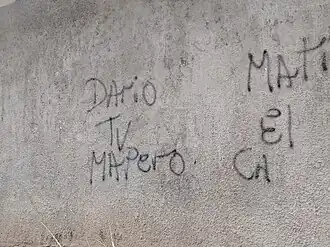 DArio
TV
MAPero.
MATi
El
CA